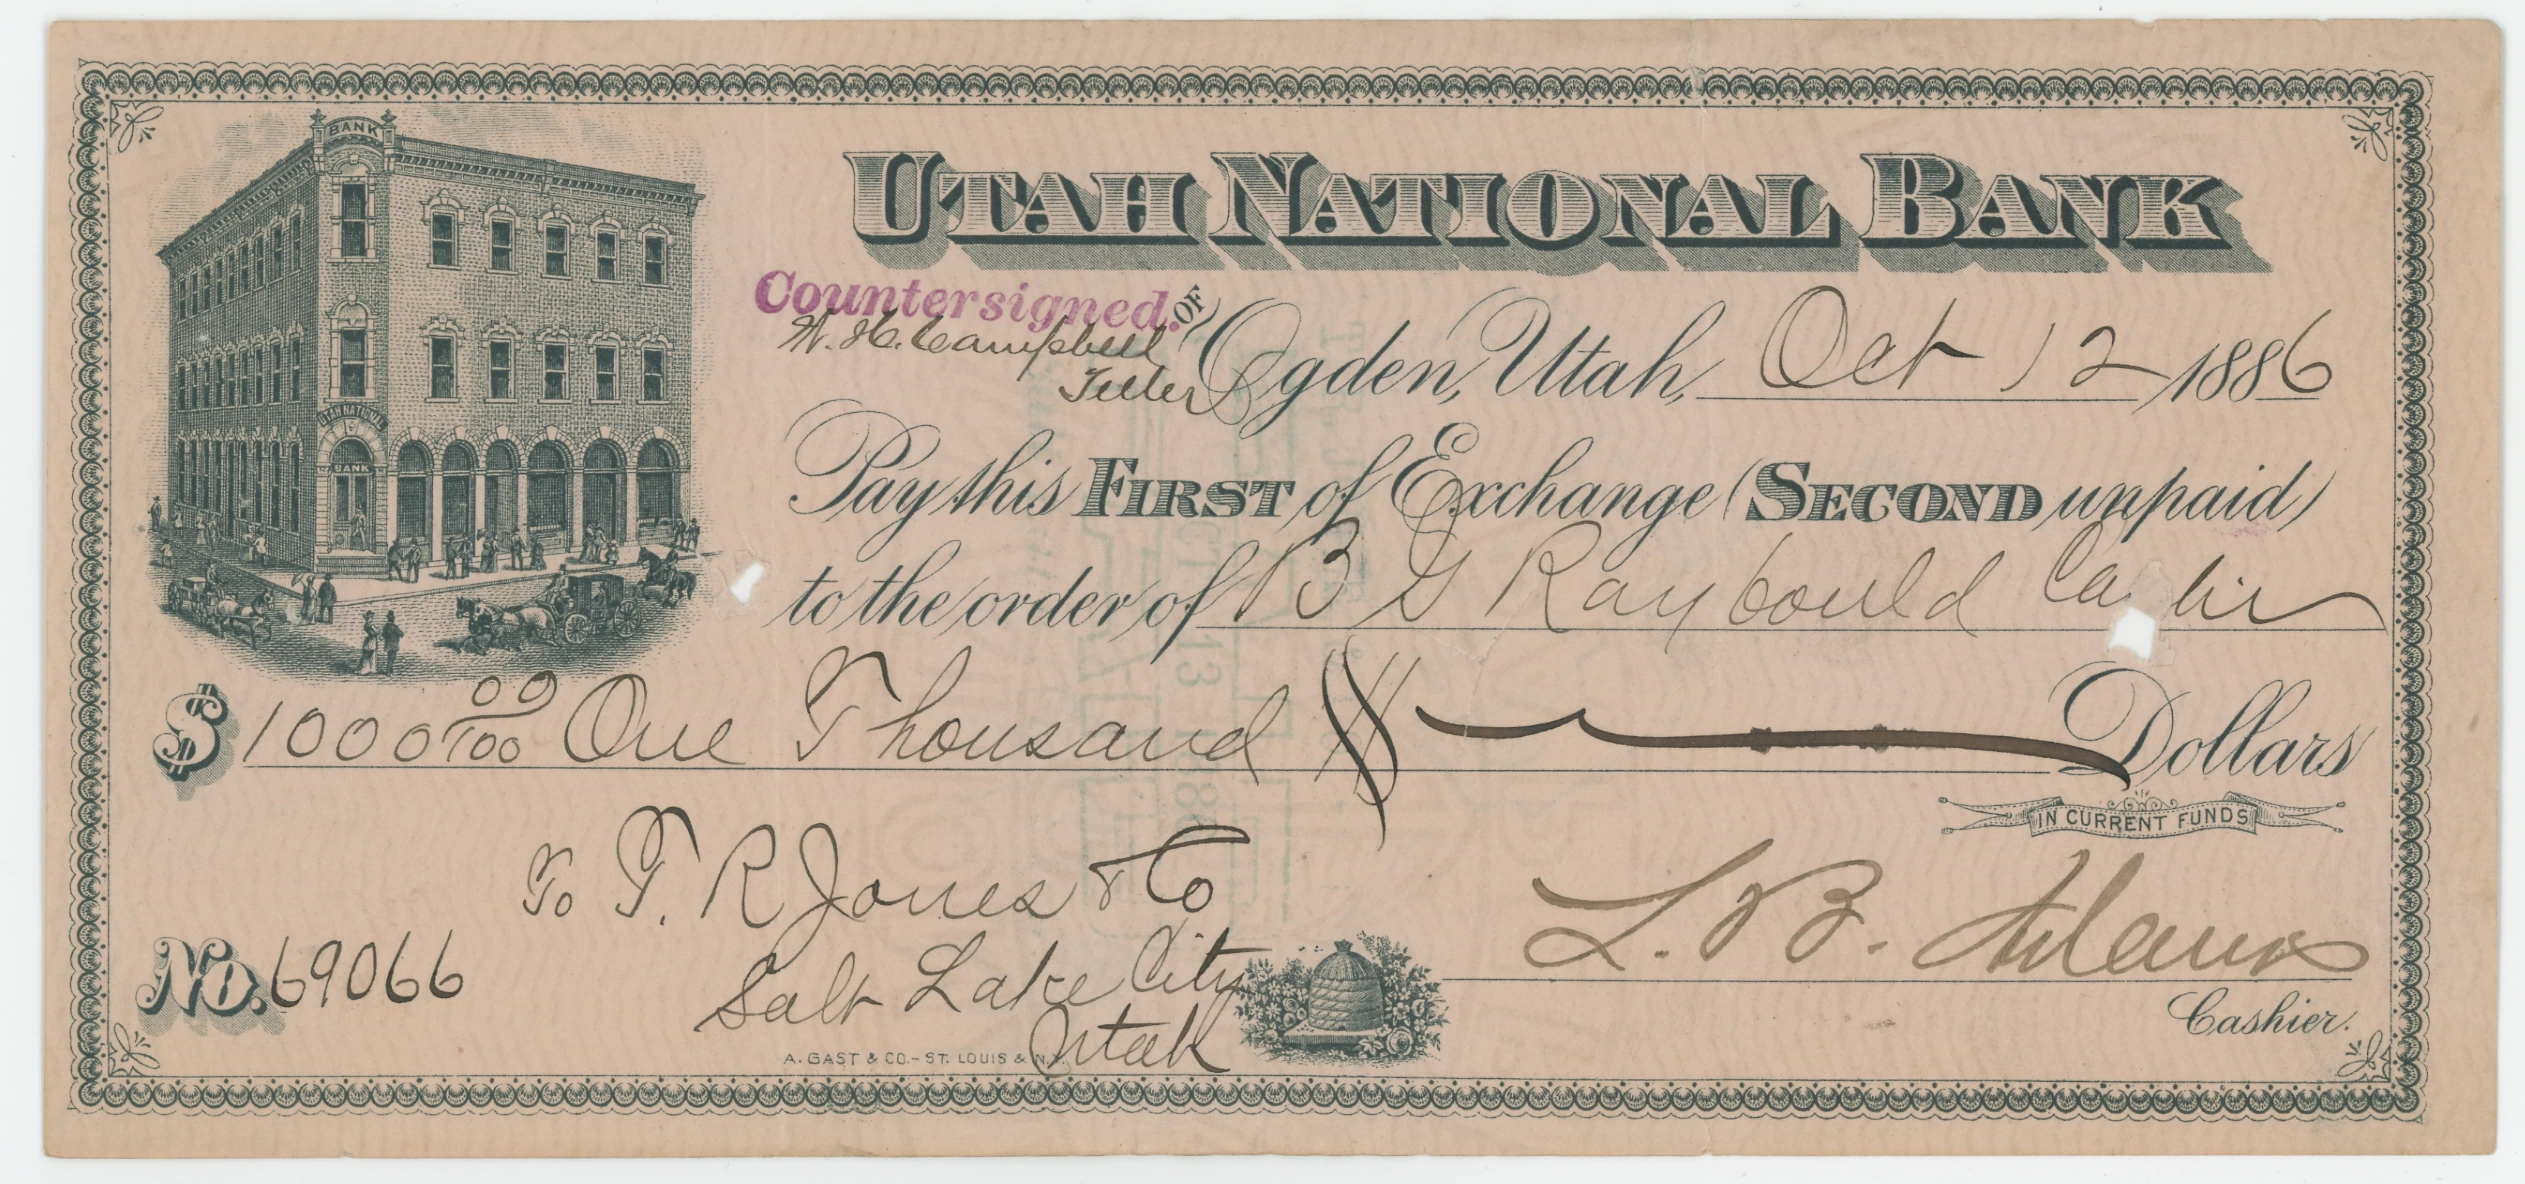 BANK
UTAH NATIONAL
BANK
UTAH NATIONAL BANK
Countersigned.
W. H. Campbell
Teller
OF Ogden, Utah, Oct 12 1886
Pay this FIRST of Exchange (SECOND unpaid)
to the order of B G Raybould Cashier
$ 1000 00/100 One Thousand Dollars
IN CURRENT FUNDS
To T. R Jones & Co
Salt Lake City
Utah
L. B. Adams
Cashier.
No. 69066
A. GAST & CO.- ST. LOUIS & N.Y.